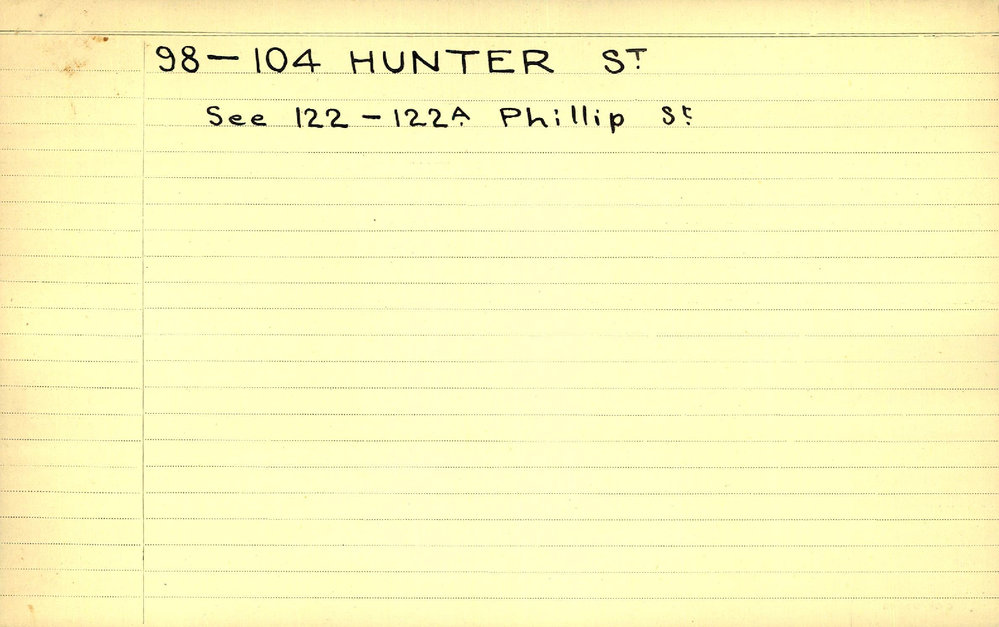 98-104 HUNTER ST.
See 122-122A Phillip St.